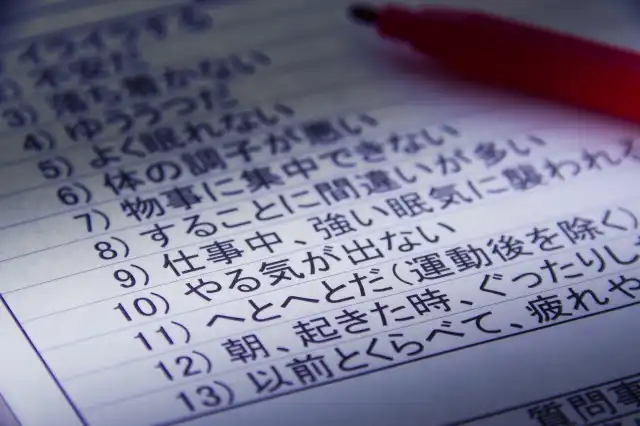 イライラする
2) 不安だ
3) 落ち着かない
4) ゆううつだ
5) よく眠れない
6) 体の調子が悪い
7) 物事に集中できない
8) することに間違いが多い
9) 仕事中、強い眠気に襲われる
10) やる気が出ない
11) へとへとだ(運動後を除く)
12) 朝、起きた時、ぐったりし
13) 以前とくらべて、疲れや
質問事